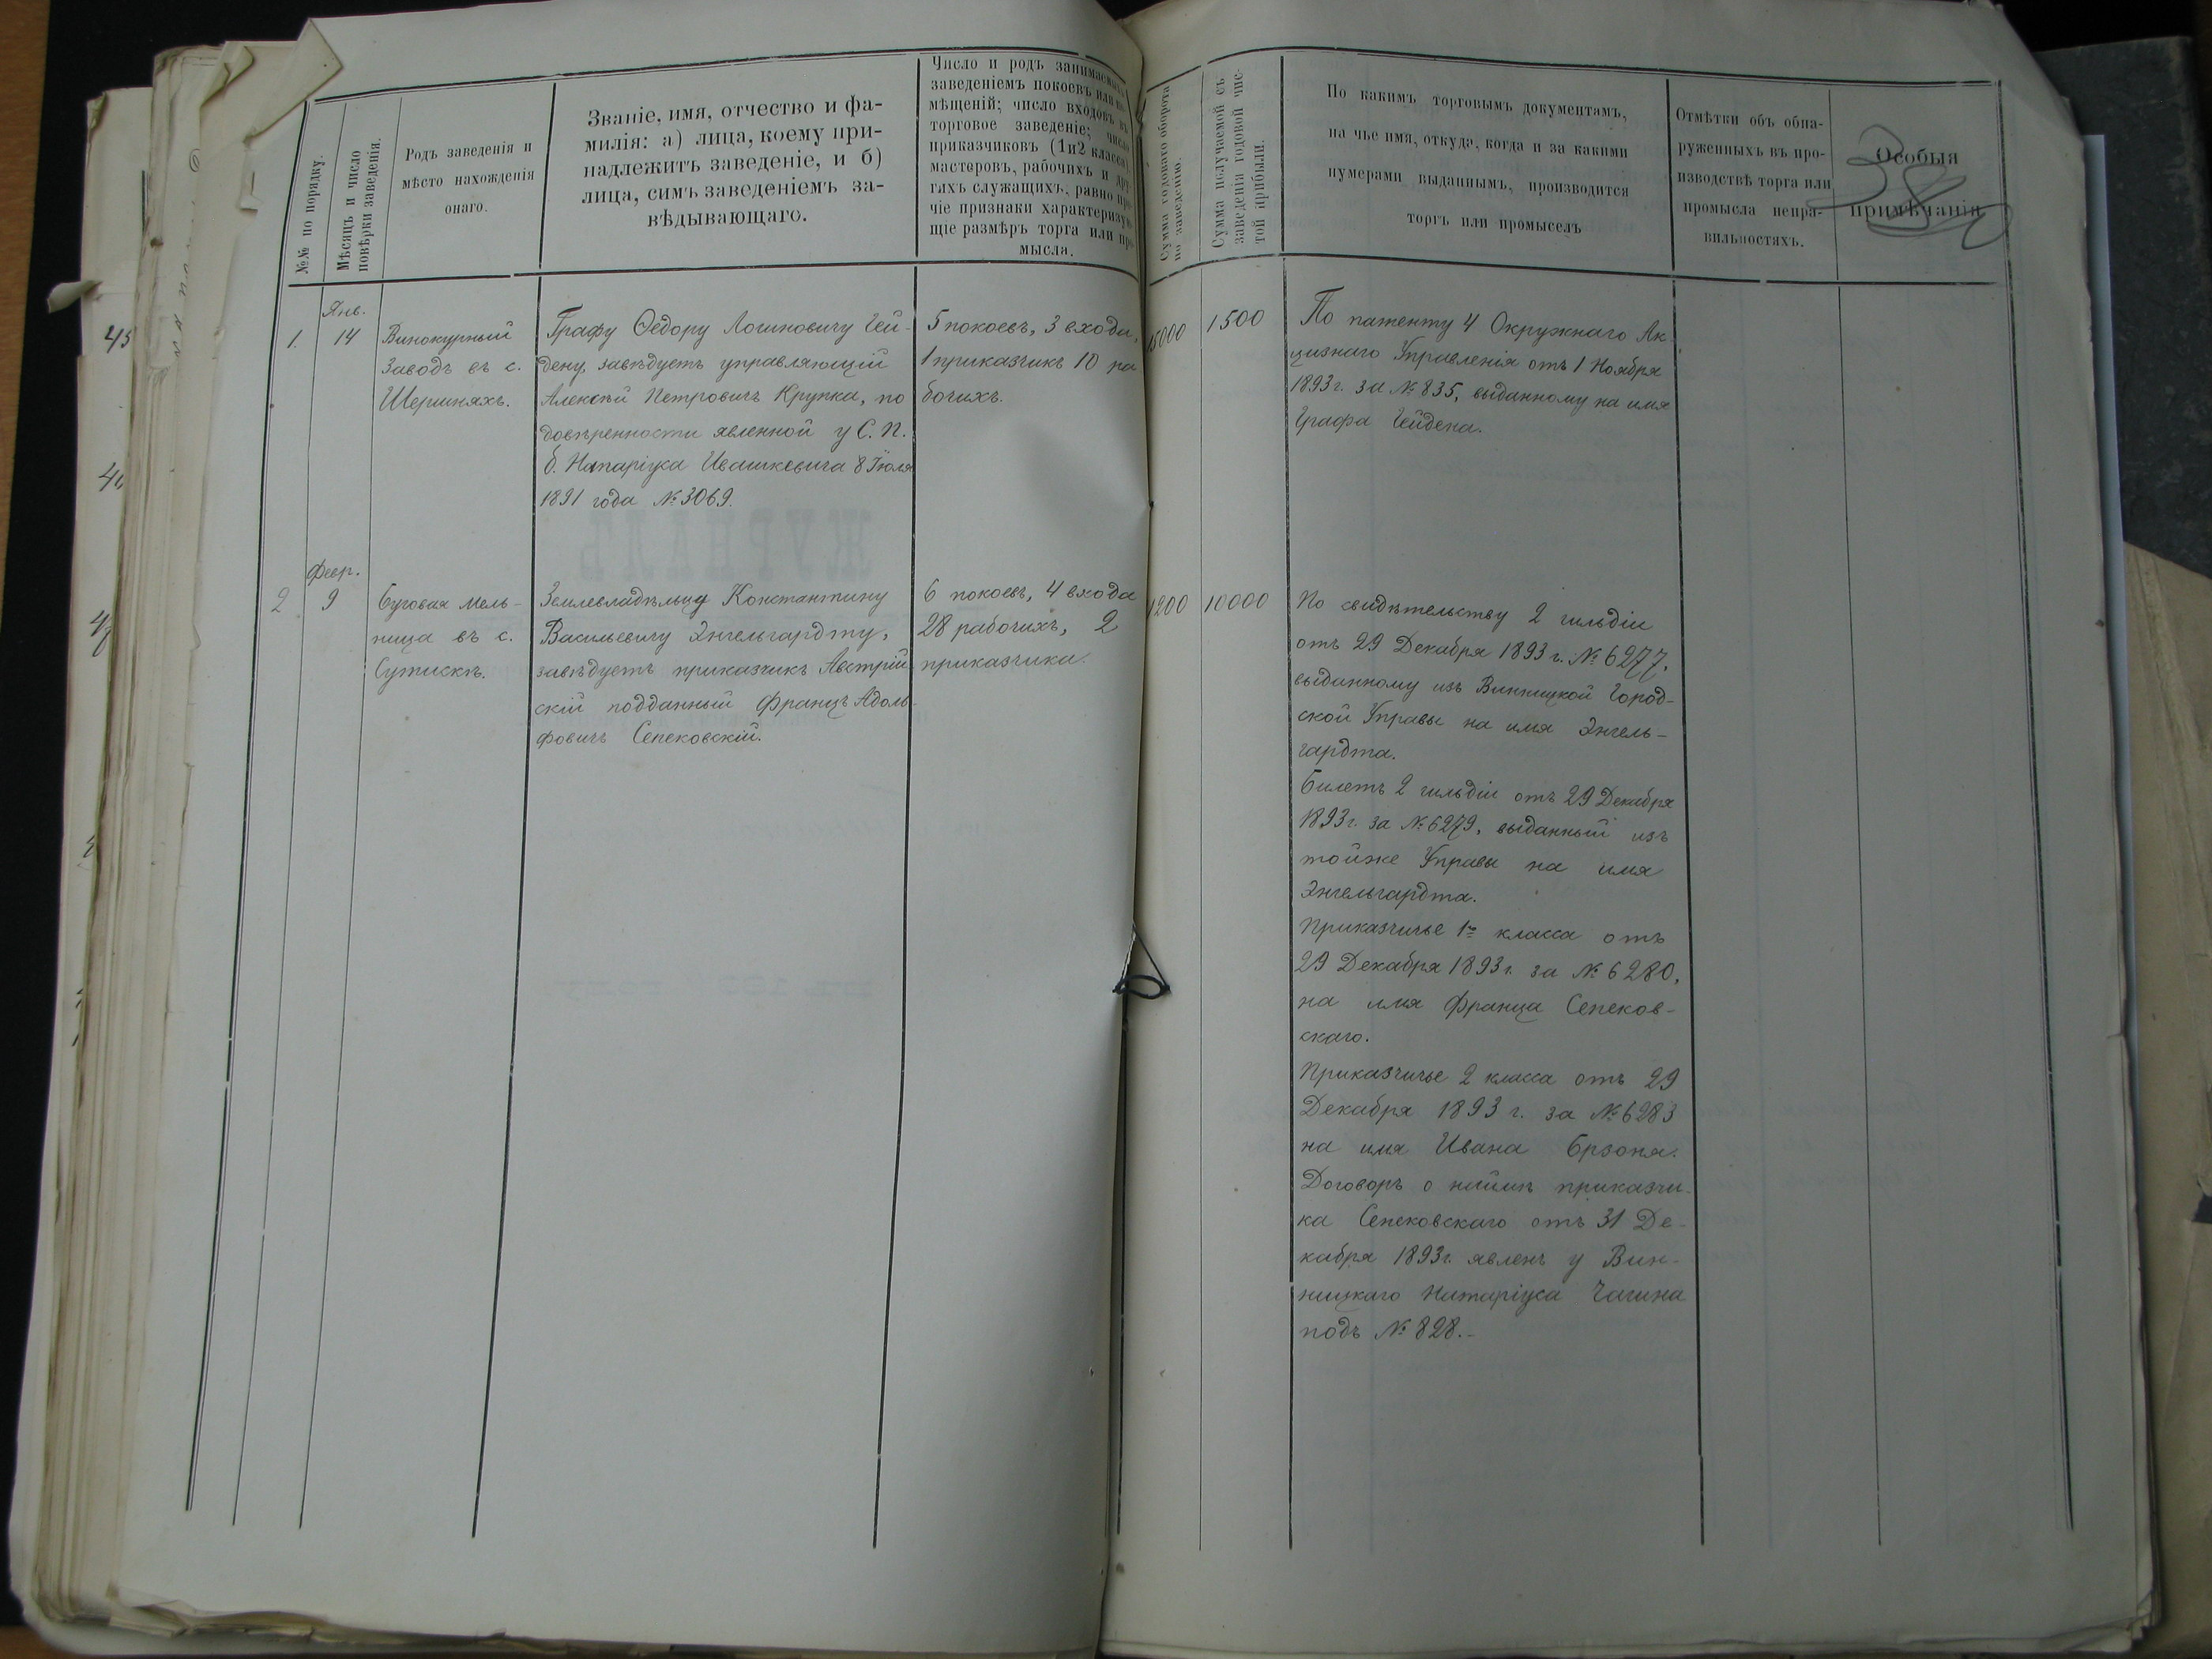 №№ по порядку.
Мѣсяцъ и число
повѣрки заведенія.
Родъ заведенія и
мѣсто нахожденія
онаго.
Званіе, имя, отчество и фа-
милія: а) лица, коему при-
надлежитъ заведеніе, и б)
лица, симъ заведеніемъ за-
вѣдывающаго.
Число и родъ занимаемыхъ
заведеніемъ покоевъ или по-
мѣщеній; число входовъ въ
торговое заведеніе; число
приказчиковъ (1 и 2 класса),
мастеровъ, рабочихъ и дру-
гихъ служащихъ, равно про-
чіе признаки характеризую-
щіе размѣръ торга или про-
мысла.
Сумма годоваго оборота
по заведенію.
Сумма получаемой съ
заведенія годовой чис-
той прибыли.
По какимъ торговымъ документамъ,
на чье имя, откуда, когда и за какими
нумерами выданнымъ, производится
торгъ или промыселъ
Отмѣтки объ обна-
руженныхъ въ про-
изводствѣ торга или
промысла непра-
вильностяхъ.
Особыя
примѣчанія
38
1.
Янв.
14
Винокурный
Заводъ въ с.
Шершняхъ.
Графу Ѳедору Логиновичу Гей-
дену, завѣдуетъ управляющій
Алексѣй Петровичъ Крупка, по
довѣренности явленной у С. П.
б. Нотаріуса Ивашкевича 8 Іюля
1891 года № 3069.
5 покоевъ, 3 входа,
1 приказчикъ 10 ра
бочихъ.
15000
1500
По патенту 4 Окружнаго Ак-
цизнаго Управленія отъ 1 Ноября
1893 г. за № 835, выданному на имя
Графа Гейдена.
2
Февр.
9
Буговая Мель-
ница въ с.
Сутискѣ.
Землевладѣльцу Константину
Васильевичу Энгельгардту,
завѣдуетъ приказчикъ Австрій
скій подданный Францъ Адоль-
фовичъ Сепековскій.
6 покоевъ, 4 входа
28 рабочихъ, 2
приказчика.
10000
По свидѣтельству 2 гильдіи
отъ 29 Декабря 1893 г. № 6277,
выданному изъ Винницкой Город-
ской Управы на имя Энгель-
гардта.
Билетъ 2 гильдіи отъ 29 Декабря
1893 г. за № 6279, выданный изъ
тойже Управы на имя
Энгельгардта.
Приказчичье 1го класса отъ
29 Декабря 1893 г. за № 6280,
на имя Франца Сепеков-
скаго.
Приказчичье 2 класса отъ 29
Декабря 1893 г. за № 6283
на имя Ивана Ерзоня.
Договоръ о наймѣ приказчи-
ка Сепековскаго отъ 31 Де-
кабря 1893 г. явленъ у Вин-
ницкаго Нотаріуса Чагина
подъ № 828.-